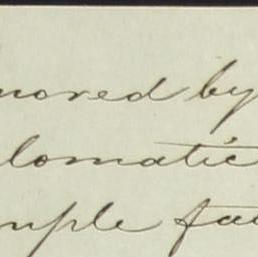 moved by
lomatic
mple fa